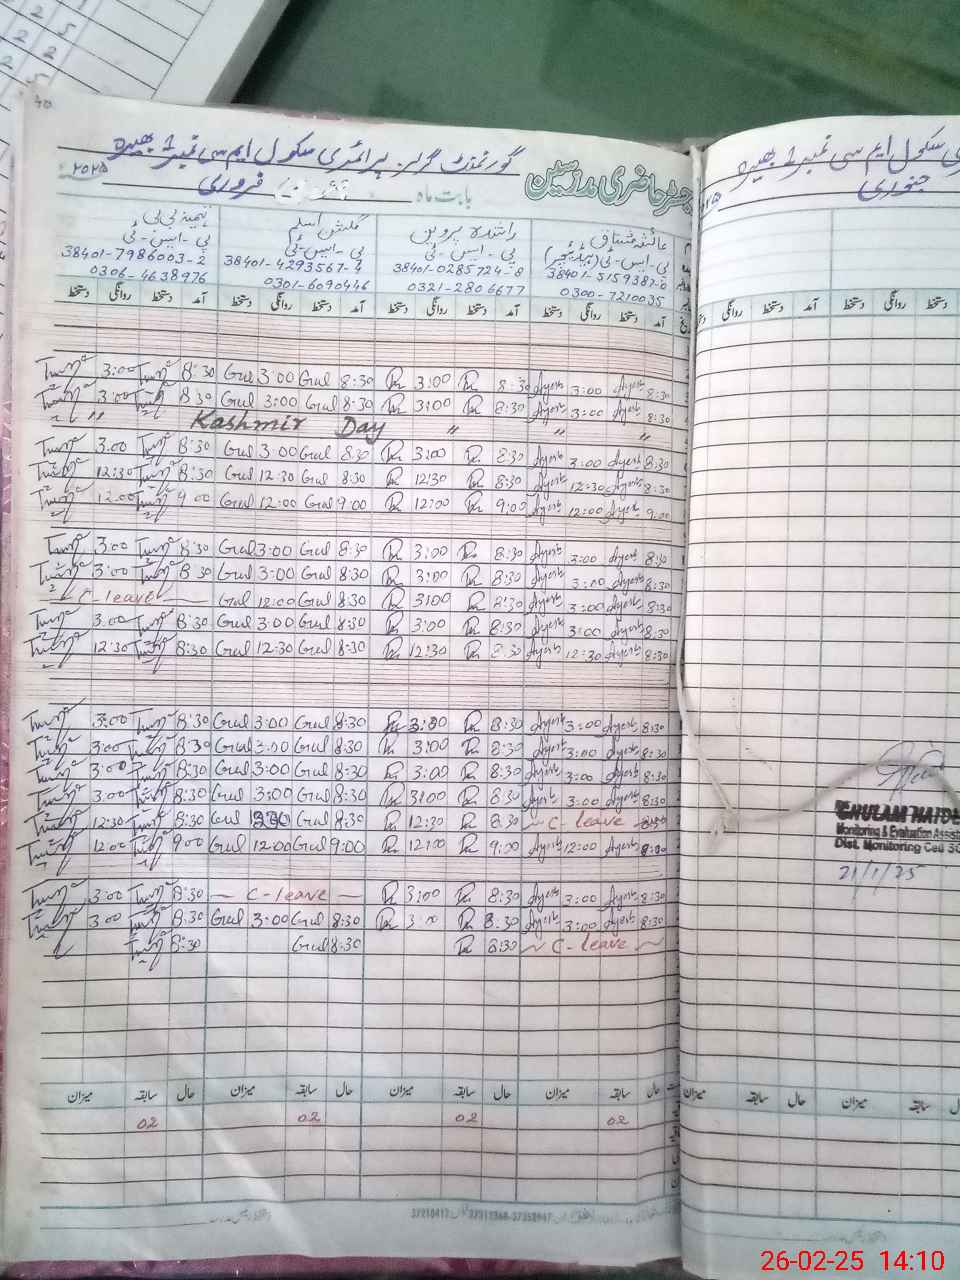 گورنمنٹ گرلز پرائمری سکول ایم سی نمبر 1 بھیرہ
رجسٹر حاضری مدرسین بابت ماہ فروری ۲۰۲۵
عائشہ مشتاق راشدہ پروین گلشن اسلم ثمینہ بی بی
پی۔ایس۔ٹی (ہیڈ ٹیچر) پی۔ایس۔ٹی پی۔ایس۔ٹی پی۔ایس۔ٹی
38401-7986003-2 38401-4293567-4 38401-0285724-8 38401-5159387-0
0306-4638976 0301-6090446 0321-2806677 0300-7210035
آمد دستخط روانگی دستخط آمد دستخط روانگی دستخط آمد دستخط روانگی دستخط آمد دستخط روانگی دستخط
3:00 8:30 Gul 3:00 Gul 8:30 3:00 8:30 Ayesh 3:00 Ayesh 8:30
3:00 8:30 Gul 3:00 Gul 8:30 3:00 8:30 Ayesh 3:00 Ayesh 8:30
" Kashmir Day " " "
3:00 8:30 Gul 3:00 Gul 8:30 3:00 8:30 Ayesh 3:00 Ayesh 8:30
12:30 8:30 Gul 12:30 Gul 8:30 12:30 8:30 Ayesh 12:30 Ayesh 8:30
12:00 9:00 Gul 12:00 Gul 9:00 12:00 9:00 Ayesh 12:00 Ayesh 9:00
3:00 8:30 Gul 3:00 Gul 8:30 3:00 8:30 Ayesh 3:00 Ayesh 8:30
3:00 8:30 Gul 3:00 Gul 8:30 3:00 8:30 Ayesh 3:00 Ayesh 8:30
C-leave Gul Gul 8:30 3:00 8:30 Ayesh 3:00 Ayesh 8:30
3:00 8:30 Gul 3:00 Gul 8:30 3:00 8:30 Ayesh 3:00 Ayesh 8:30
12:30 8:30 Gul 12:30 Gul 8:30 12:30 8:30 Ayesh 12:30 Ayesh 8:30
3:00 8:30 Gul 3:00 Gul 8:30 3:00 8:30 Ayesh 3:00 Ayesh 8:30
3:00 8:30 Gul 3:00 Gul 8:30 3:00 8:30 Ayesh 3:00 Ayesh 8:30
3:00 8:30 Gul 3:00 Gul 8:30 3:00 8:30 Ayesh 3:00 Ayesh 8:30
3:00 8:30 Gul 3:00 Gul 8:30 3:00 8:30 Ayesh 3:00 Ayesh 8:30
12:30 8:30 Gul Gul 8:30 12:30 8:30 C-leave
12:00 9:00 Gul 12:00 Gul 9:00 12:00 9:00 Ayesh 12:00 Ayesh
3:00 8:30 C-leave 3:00 8:30 Ayesh 3:00 Ayesh 8:30
3:00 8:30 Gul 3:00 Gul 8:30 3:00 8:30 Ayesh 3:00 Ayesh 8:30
8:30 Gul 8:30 8:30 C-leave
حال سابقہ میزان حال سابقہ میزان حال سابقہ میزان حال سابقہ میزان
02 02 02 02
سکول ایم سی نمبر 1 بھیرہ
جنوری
آمد دستخط روانگی دستخط
GHULAM HAIDE
Monitoring & Evaluation Assist
Dist. Monitoring Cell
21/1/25
حال سابقہ میزان حال سابقہ میزان
26-02-25 14:10